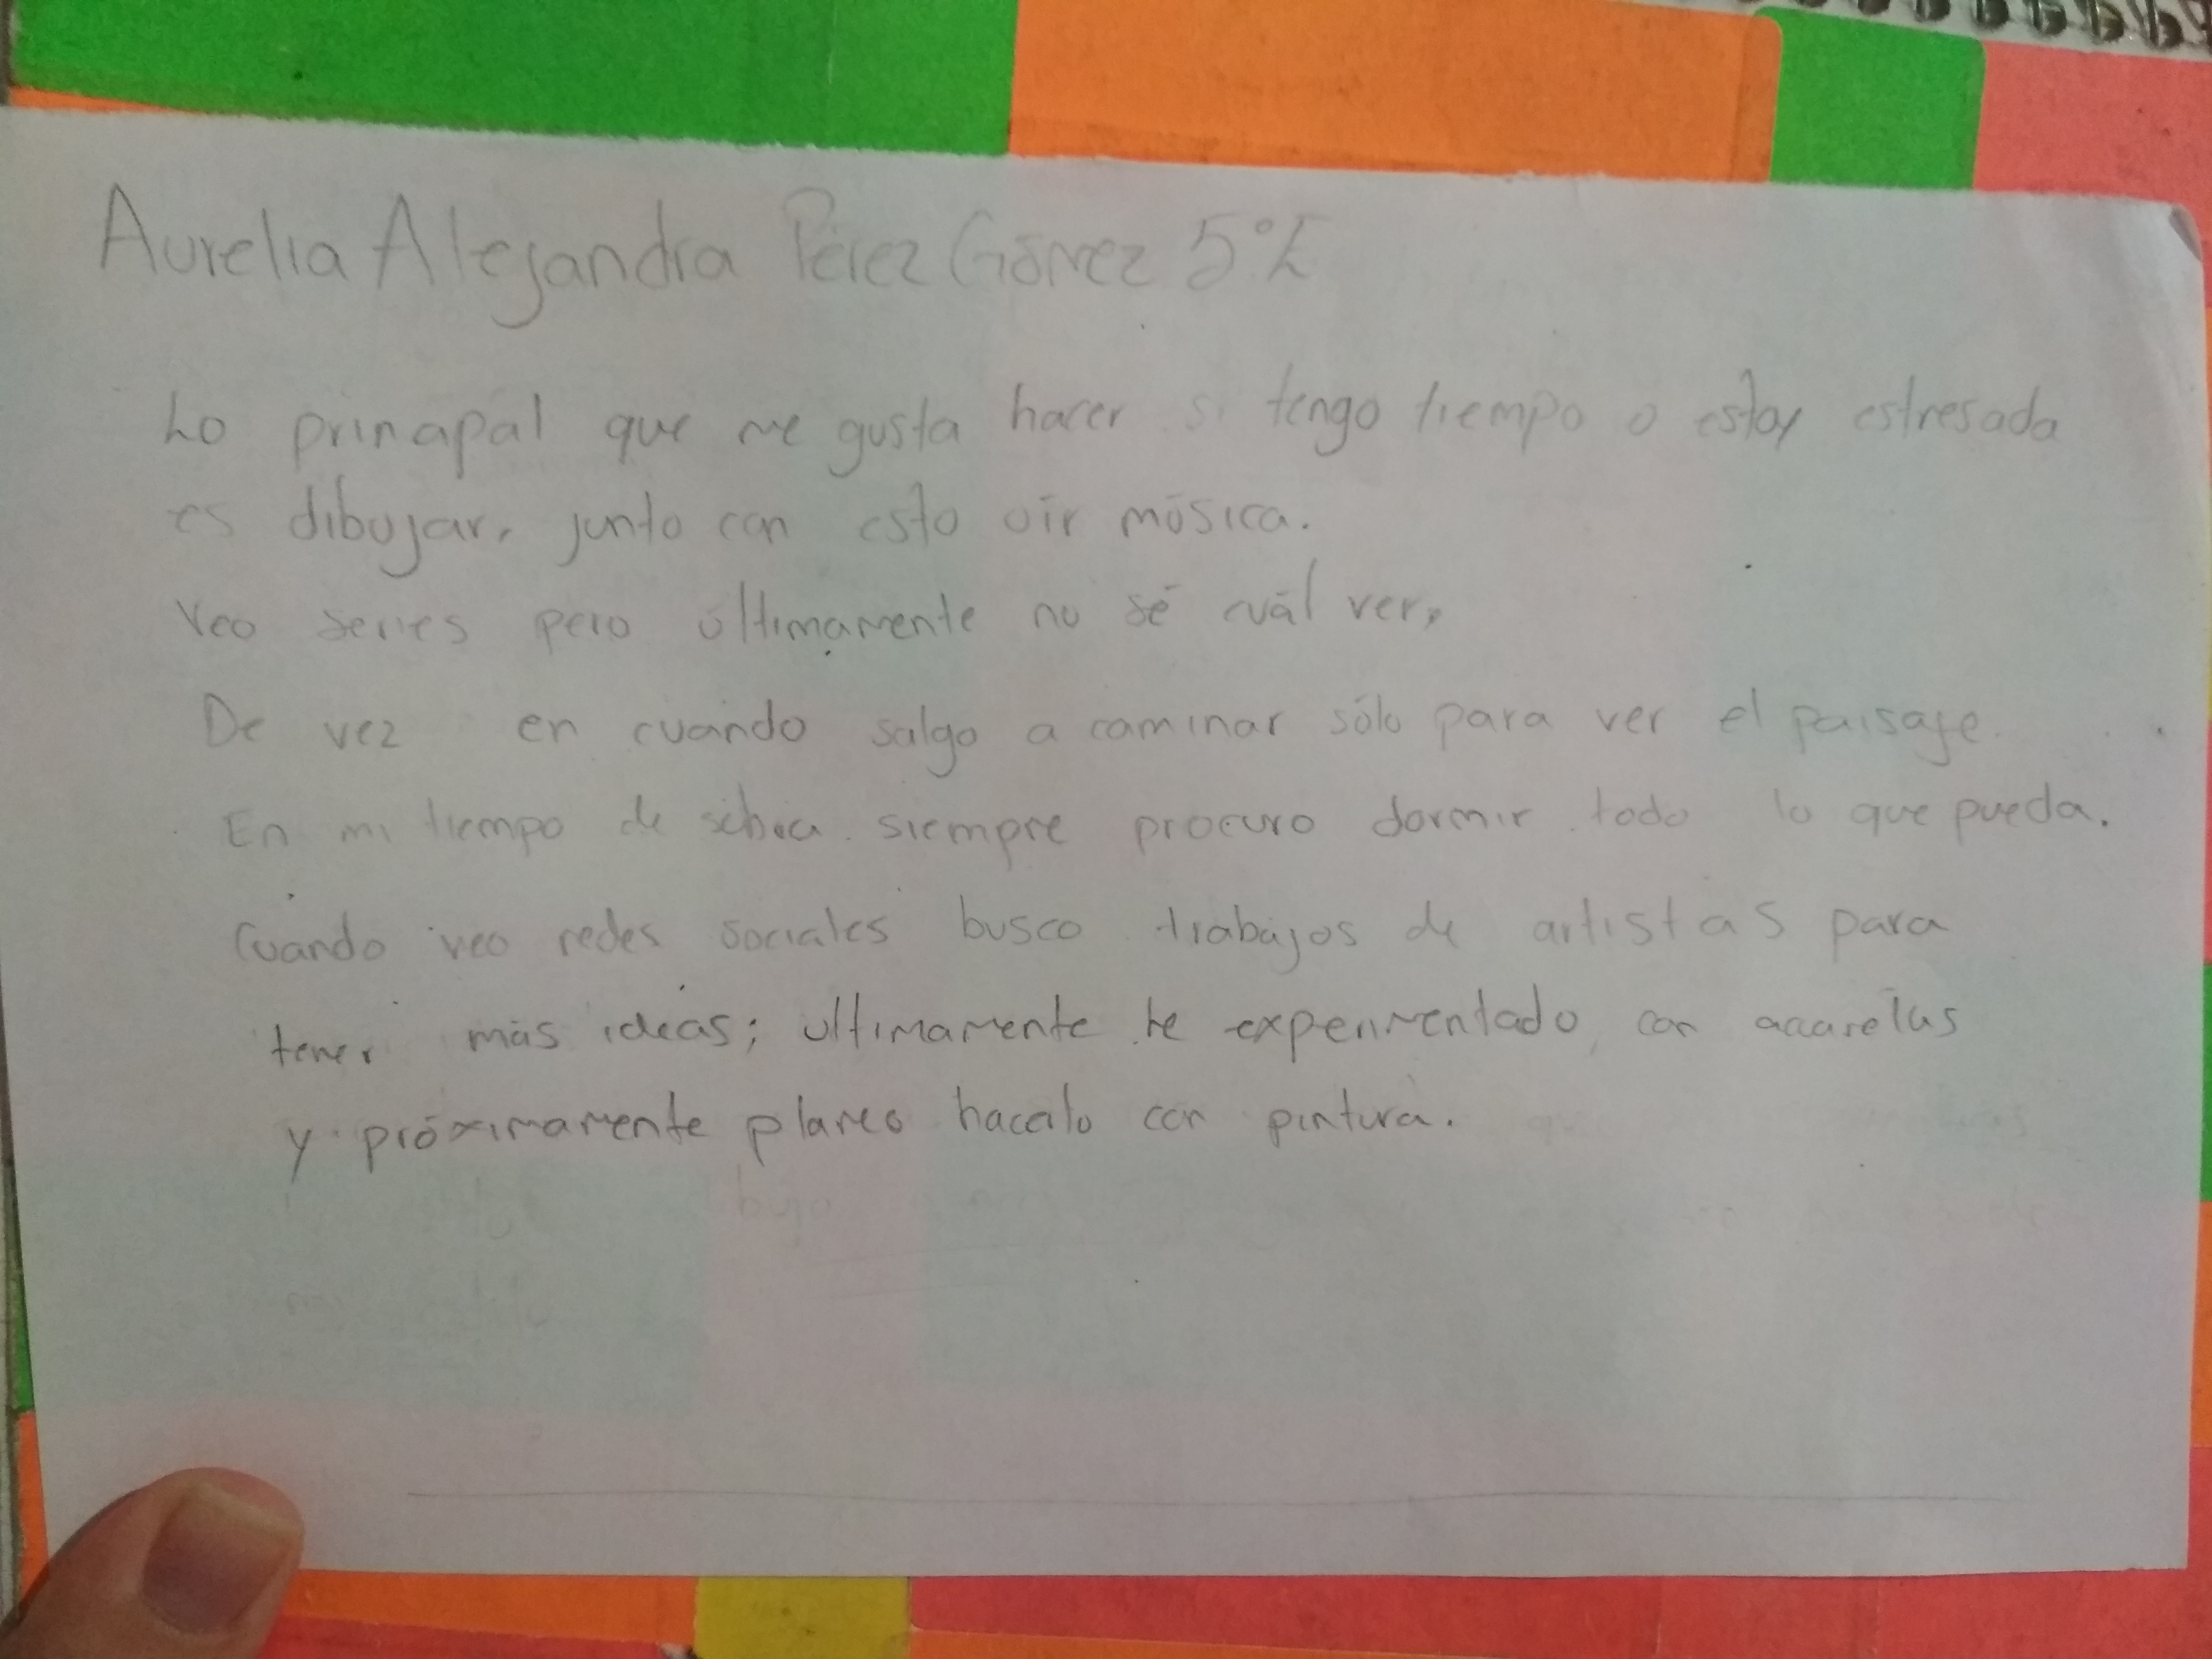 Aurelia Alejandra Pérez Gómez 5°E
Lo principal que me gusta hacer si tengo tiempo o estoy estresada
es dibujar, junto con esto oír música.
Veo series pero últimamente no sé cuál ver,
De vez en cuando salgo a caminar sólo para ver el paisaje.
En mi tiempo de siempre procuro dormir todo lo que pueda.
Cuando veo redes sociales busco trabajos de artistas para
tener más ideas; ultimamente he experimentado, con acuarelas
y próximamente planeo hacerlo con pintura.